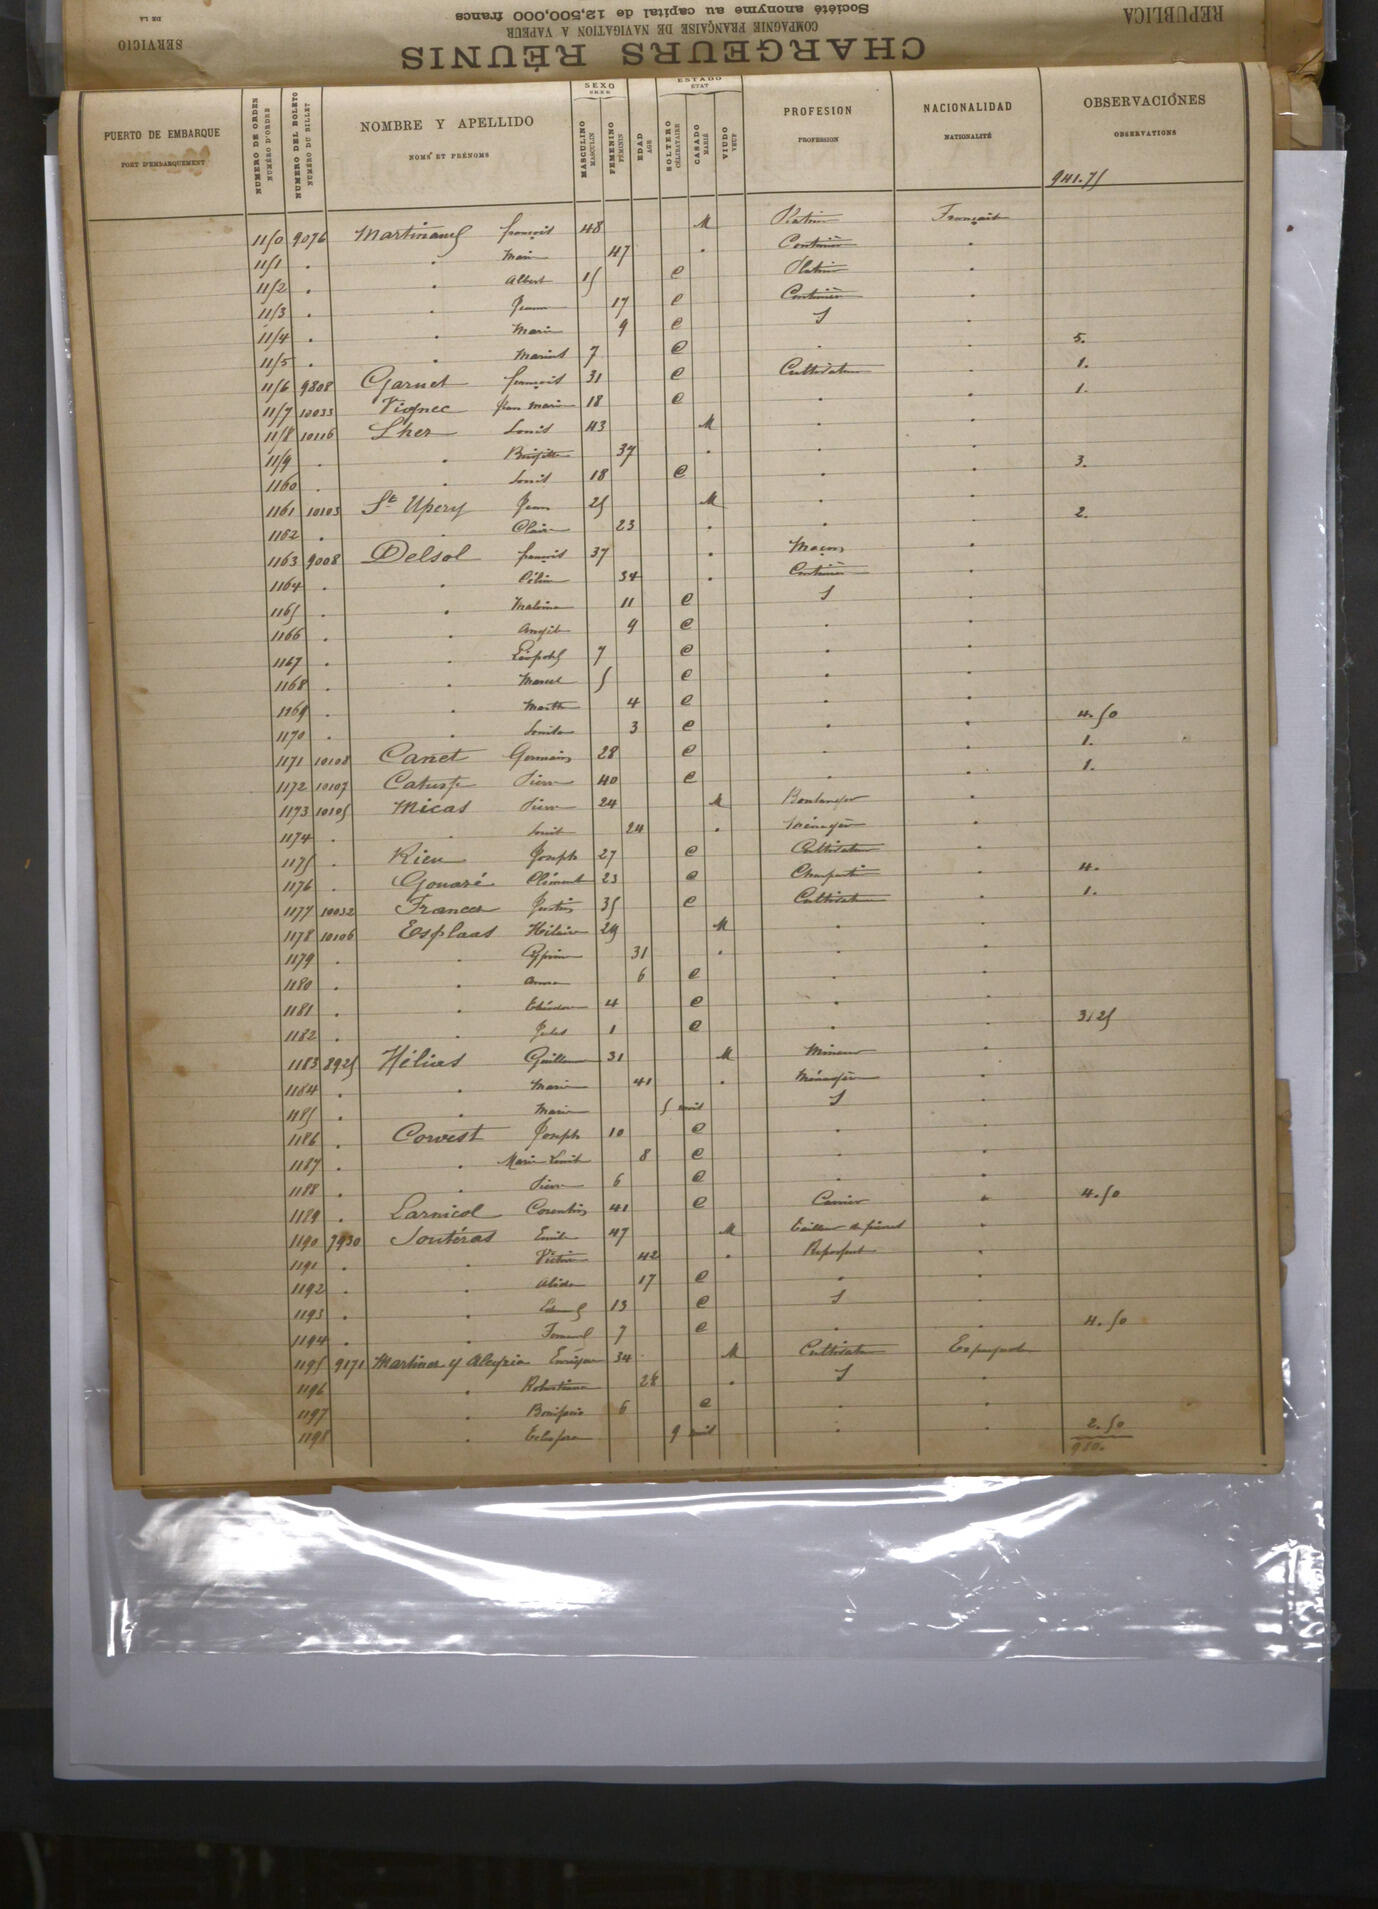 REPUBLICA
SERVICIO
DE LA
CHARGEURS RÉUNIS
COMPAGNIE FRANÇAISE DE NAVIGATION A VAPEUR
Société anonyme au capital de 12,500,000 francs
PUERTO DE EMBARQUE PORT D'EMBARQUEMENT
NUMERO DE ORDEN NUMÉRO D'ORDRE
NUMERO DEL BOLETO NUMÉRO DU BILLET
NOMBRE Y APELLIDO NOMS ET PRÉNOMS
SEXO SEXE
MASCULINO MASCULIN
FEMENINO FÉMININ
EDAD AGE
ESTADO ETAT
SOLTERO CÉLIBATAIRE
CASADO MARIÉ
VIUDO VEUF
PROFESION PROFESSION
NACIONALIDAD NATIONALITÉ
OBSERVACIONES OBSERVATIONS
941.75
1150 9076 Martinaud françois 48 M Français
1151 . . Marie 47 . Couturière .
1152 . . Albert 15 C .
1153 . . Jeanne 17 C Couturière .
1154 . . Marie 9 C S .
1155 . . Marius 7 C . . 5.
1156 9808 Garnet françois 31 C Cultivateur . 1.
1157 10033 Vignec Jean Marie 18 C . . 1.
1158 10116 Lher Louis 43 M . .
1159 . . Brigitte 37 . . .
1160 . . Louis 18 C . . 3.
1161 10103 St Upery Jean 25 M . .
1162 . . Claire 23 . . . 2.
1163 9008 Delsol françois 37 . Maçon .
1164 . . Célina 34 . Couturière .
1165 . . Malvina 11 C S .
1166 . . Angèle 9 C . .
1167 . . Léopold 7 C . .
1168 . . Marcel 5 C . .
1169 . . Marthe 4 C . .
1170 . . Louise 3 C . . 4.50
1171 10108 Canet Germain 28 C . . 1.
1172 10107 Pierre 40 C . . 1.
1173 10105 Micas Pierre 24 M Boulanger .
1174 . . Louise 24 . Ménagère .
1175 . Rieu Joseph 27 C Cultivateur .
1176 . Gouazé Clément 23 C Charpentier . 4.
1177 10032 Francez Justin 35 C Cultivateur . 1.
1178 10106 Esplaas Hilaire 29 M . .
1179 . . 31 . . .
1180 . . Anna 6 C . .
1181 . . Théodore 4 C . .
1182 . . Jules 1 C . . 3.25
1183 8925 Hélias Guillaume 31 M Mineur .
1184 . . Marie 41 . Ménagère .
1185 . . Marie 5 mois S .
1186 . Corvest Joseph 10 C . .
1187 . . Marie Louise 8 C . .
1188 . . Pierre 6 C . .
1189 . Larnicol Corentin 41 C Carrier . 4.50
1190 7930 Soutéras Emile 47 M Tailleur de pierres .
1191 . . 42 . .
1192 . . Alida 17 C . .
1193 . . Edmond 13 C S .
1194 . . Fernand 7 C . . 4.50
1195 9171 Martinez y Enrique 34 M Cultivateur Espagnole
1196 . Robustiana 28 . S .
1197 . Bonifacio 6 C . .
1198 . 9 mois . . 2.50
980.